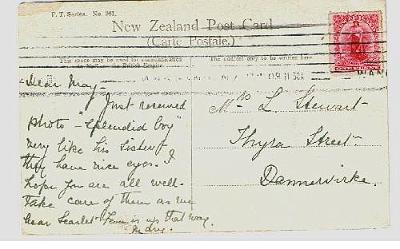 F. T. Series. No. 361.
New Zealand Post Card
(Carte Postale.)
This space may be used for communication
The address only to be written here
Dear May
I Just received
photo "Splendid boy"
very like his Sister
they have nice eyes. I
hope you are all well.
Take care of them as we
hear Scarlet Fever is up that way.
Mrs L Stewart
Thyra Street
Dannevirke.